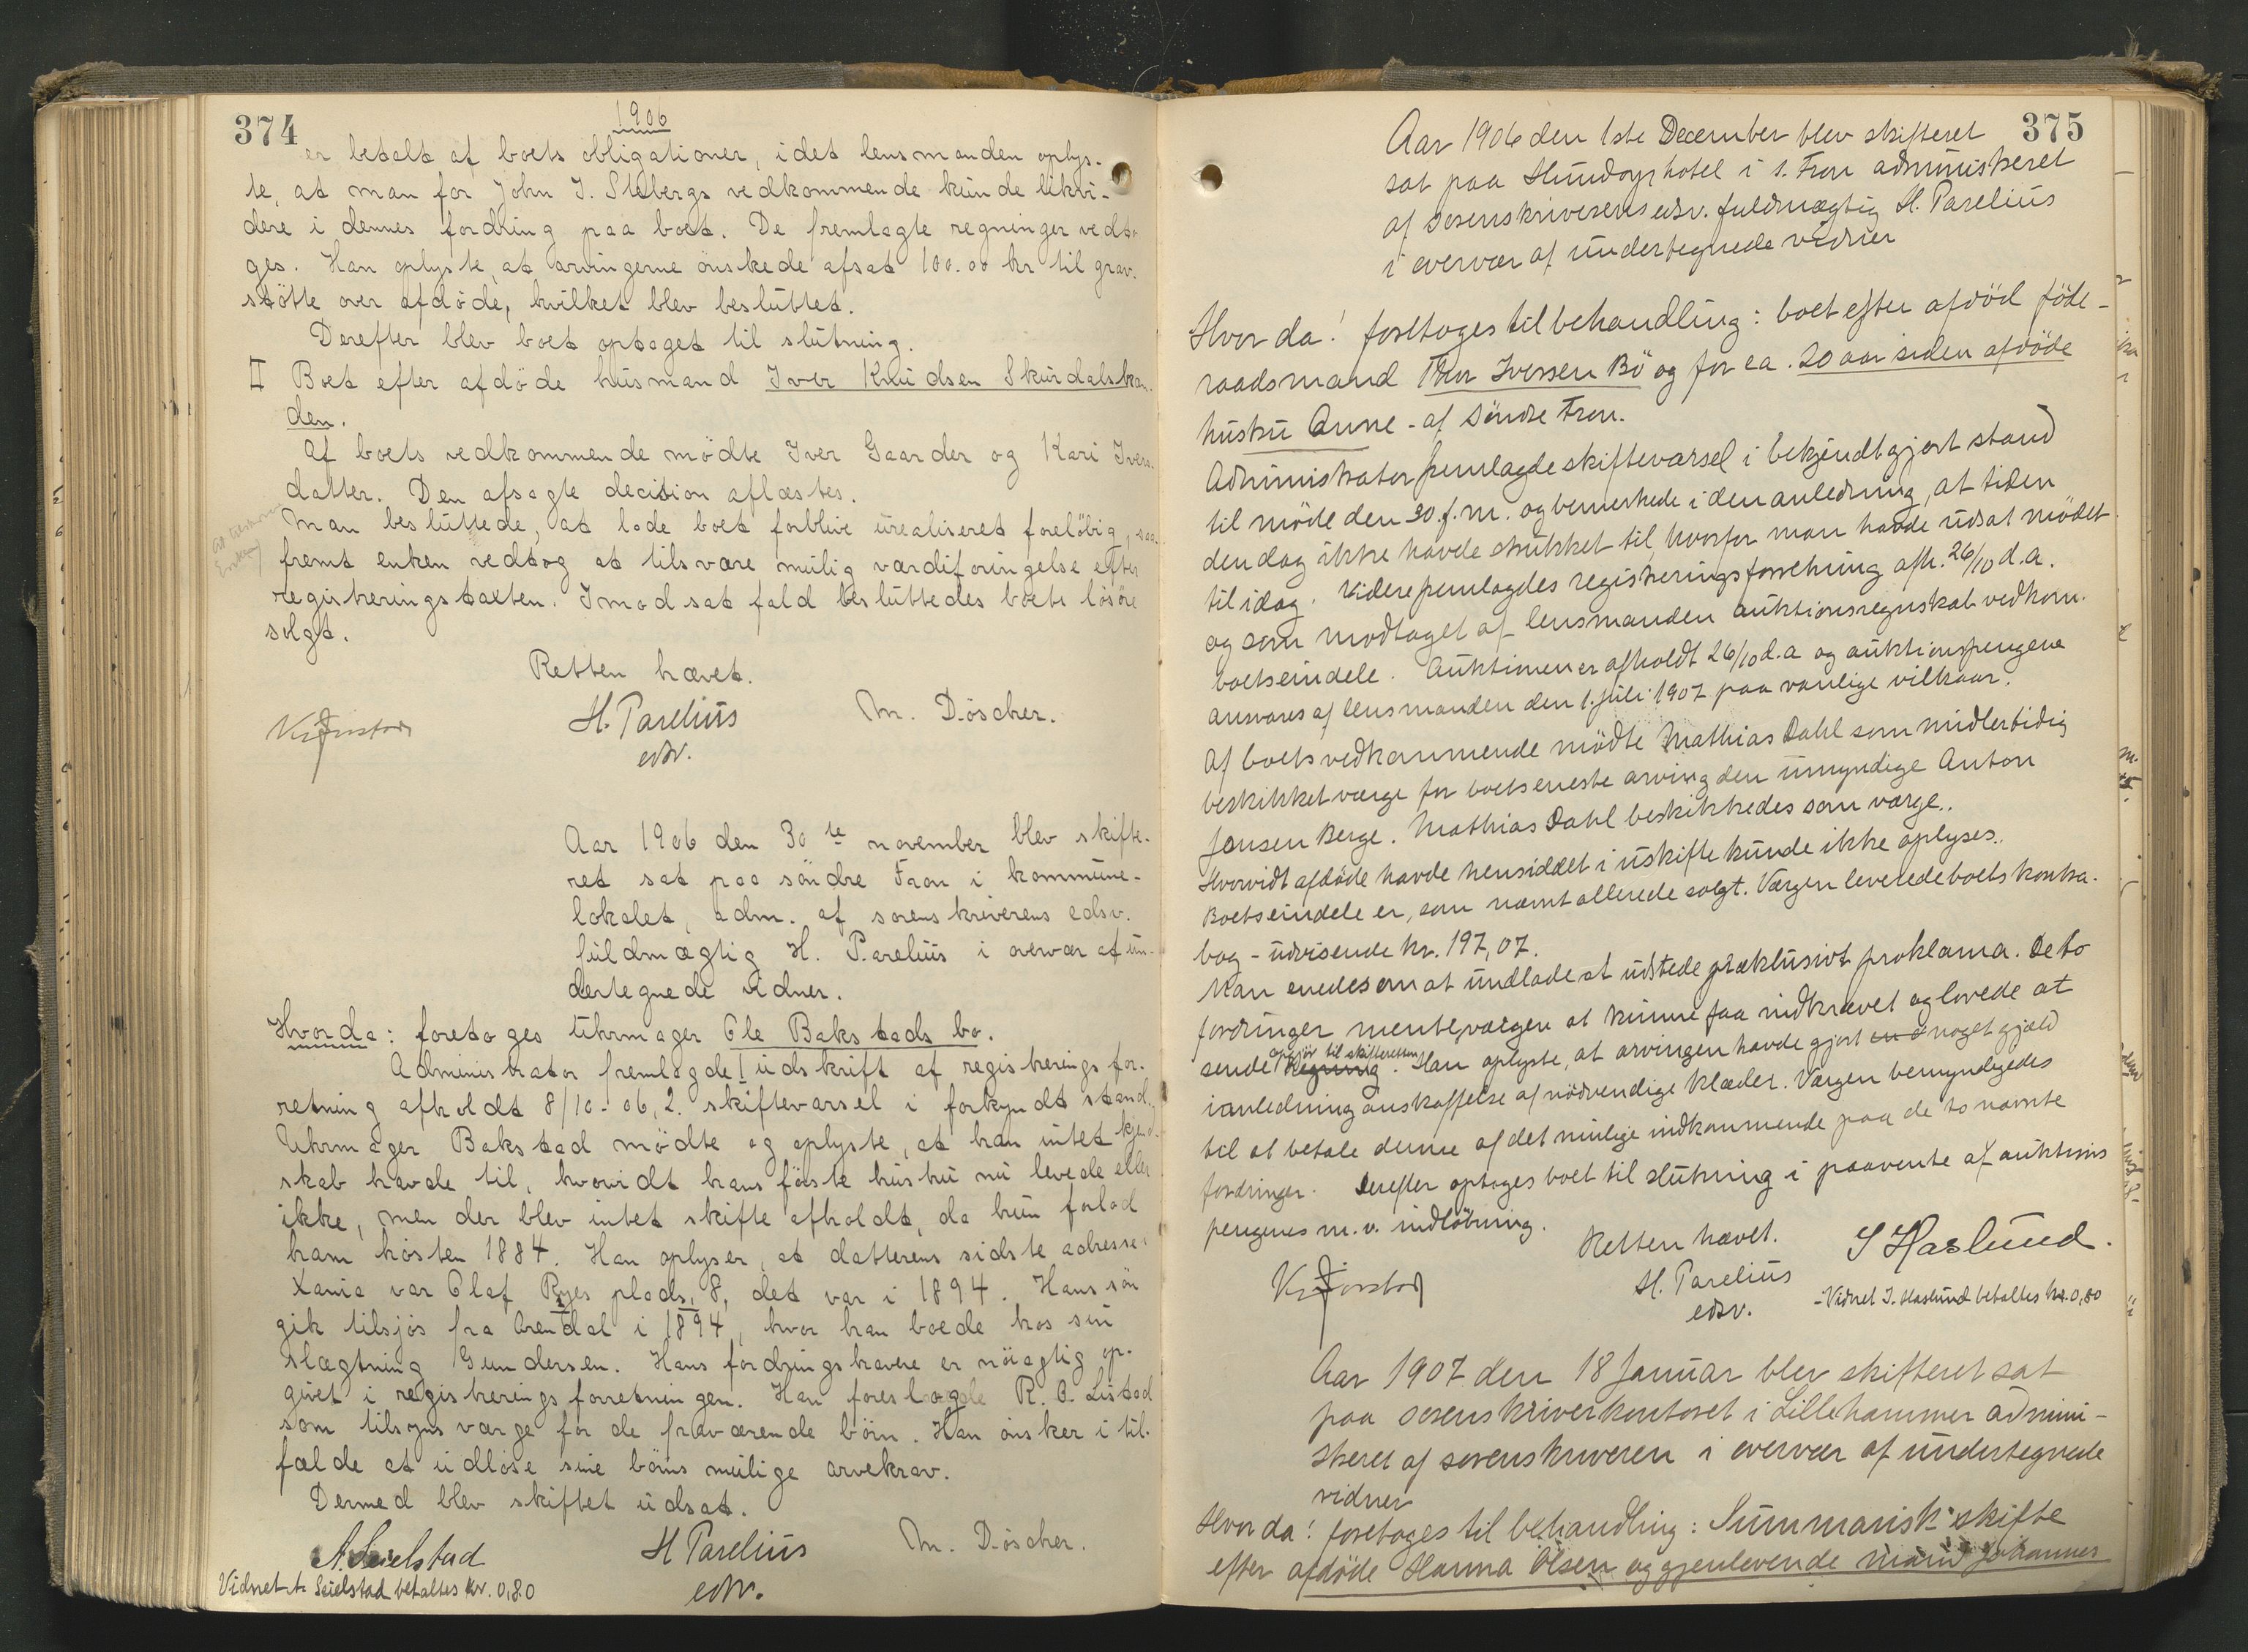 374
1906
er betalt af boets obligationer, idet lensmanden oplys-
te, at man for John J. Stebergs vedkommende kunde likvi-
dere i dennes fordring paa boet. De fremlagte regninger vedto-
ges. Han oplyste, at arvingerne önskede afsat 100.00 kr til grav-
stötte over afdöde, hvilket blev besluttet.
Derefter blev boet optaget til slutning.
II Boet efter afdöde husmand Iver Knudsen Skurdalskan-
den.
Af boets vedkommende mödte Iver Gaarder og Kari Ivers-
datter. Den afsagte decision aflæstes.
Man besluttede, at lade boet forblive urealiseret forelöbig, saa
fremt enken vedtog at tilsvare mulig værdiforingelse efter
registreringstakten. I modsat fald besluttedes boets lösöre
solgt.
Retten hævet.
H. Parelius M. Döscher.
edsv.
Aar 1906 den 30te november blev skifte-
ret sat paa söndre Fron i kommune-
lokalet, adm. af sorenskriverens edsv.
fuldmægtig H. Parelius i overvær af un-
dertegnede vidner.
Hvorda: foretoges uhrmager Ole Bakstads bo.
Administrator fremlagde 1 udskrift af registrerings for-
retning afholdt 8/10-06, 2. skiftevarsel i forkyndt stand.
Uhrmager Bakstad mödte og oplyste, at han intet kjend-
skab havde til, hvorvidt hans förste hustru nu levede eller
ikke, men der blev intet skifte afholdt, da hun forlod
ham hösten 1884. Han oplyser, at datterens sidste adresse i
Xania var Olaf Ryes plads, 8, det var i 1894. Hans sön
gik tilsjös fra Arendal i 1894, hvor han boede hos sin
slægtning Gundersen. Hans fordringshavere er nöiagtig op-
givet i registreringsforretningen. Han foreslog R. O. Listad
som tilsynsværge for de fraværende börn. Han önsker i til-
fælde at udlöse sine börns mulige arvekrav.
Dermed blev skiftet udsat.
A. Seielstad H Parelius M. Döscher.
Vidnet A. Seielstad betaltes kr. 0,80 edsv.
375
Aar 1906 den 1ste December blev skifteret
sat paa Hundorp hotel i s. Fron administreret
af sorenskriverens edsv. fuldmægtig H. Parelius
i overvær af undertegnede vidner
Hvor da! foretoges til behandling: boet efter afdöd föde-
raadsmand Thor Iversen Bö og for ca. 20 aar siden afdöde
hustru Anne - af Söndre Fron.
Administrator fremlagde skiftevarsel i bekjendtgjort stand
til möde den 30. f. m. og bemerkede i den anledning, at tiden
den dag ikke havde strukket til, hvorfor man havde udsat mödet
til idag. Videre fremlagdes registreringsforretning afh. 26/10 d.a.
og som modtaget af lensmanden auktionsregnskab vedkom.
boets eindele. Auktionen er afholdt 26/10 d.a og auktionspengene
ansvares af lensmanden den 1. juli 1907 paa vanlige vilkaar.
Af boets vedkommende mödte Mathias Dahl som midlertidig
beskikket værge for boets eneste arving den umyndige Anton
Jonsen Berge. Mathias Dahl beskikkedes som værge.
Hvorvidt afdöde havde hensiddet i uskifte kunde ikke oplyses.
Boets eindele er, som nævnt allerede solgt. Værgen leverede boets kontra-
bog - udvisende kr. 197,07.
Man enedes om at undlade at udstede præklusivt proklama. De to
fordringer mente værgen at kunne faa indkrævet og lovede at
sende opgjör til skifteretten. Han oplyste, at arvingen havde gjort noget gjæld
i anledning anskaffelse af nödvendige klæder. Værgen bemyndigedes
til at betale denne af det mulige indkommende paa de to nævnte
fordringer. Derefter optoges boet til slutning i paavente af auktions
pengenes m. v. indlöbning.
Retten hævet. S Haslund.
H. Parelius
edsv. - Vidnet S. Haslund betaltes kr. 0,80
Aar 1907 den 18 Januar blev skifteret sat
paa sorenskriverkontoret i Lillehammer admini-
streret af sorenskriveren i overvær af undertegnede
vidner
Hvor da! foretoges til behandling: Summarisk skifte
efter afdöde Hanna Olsen og gjenlevende mand Johannes